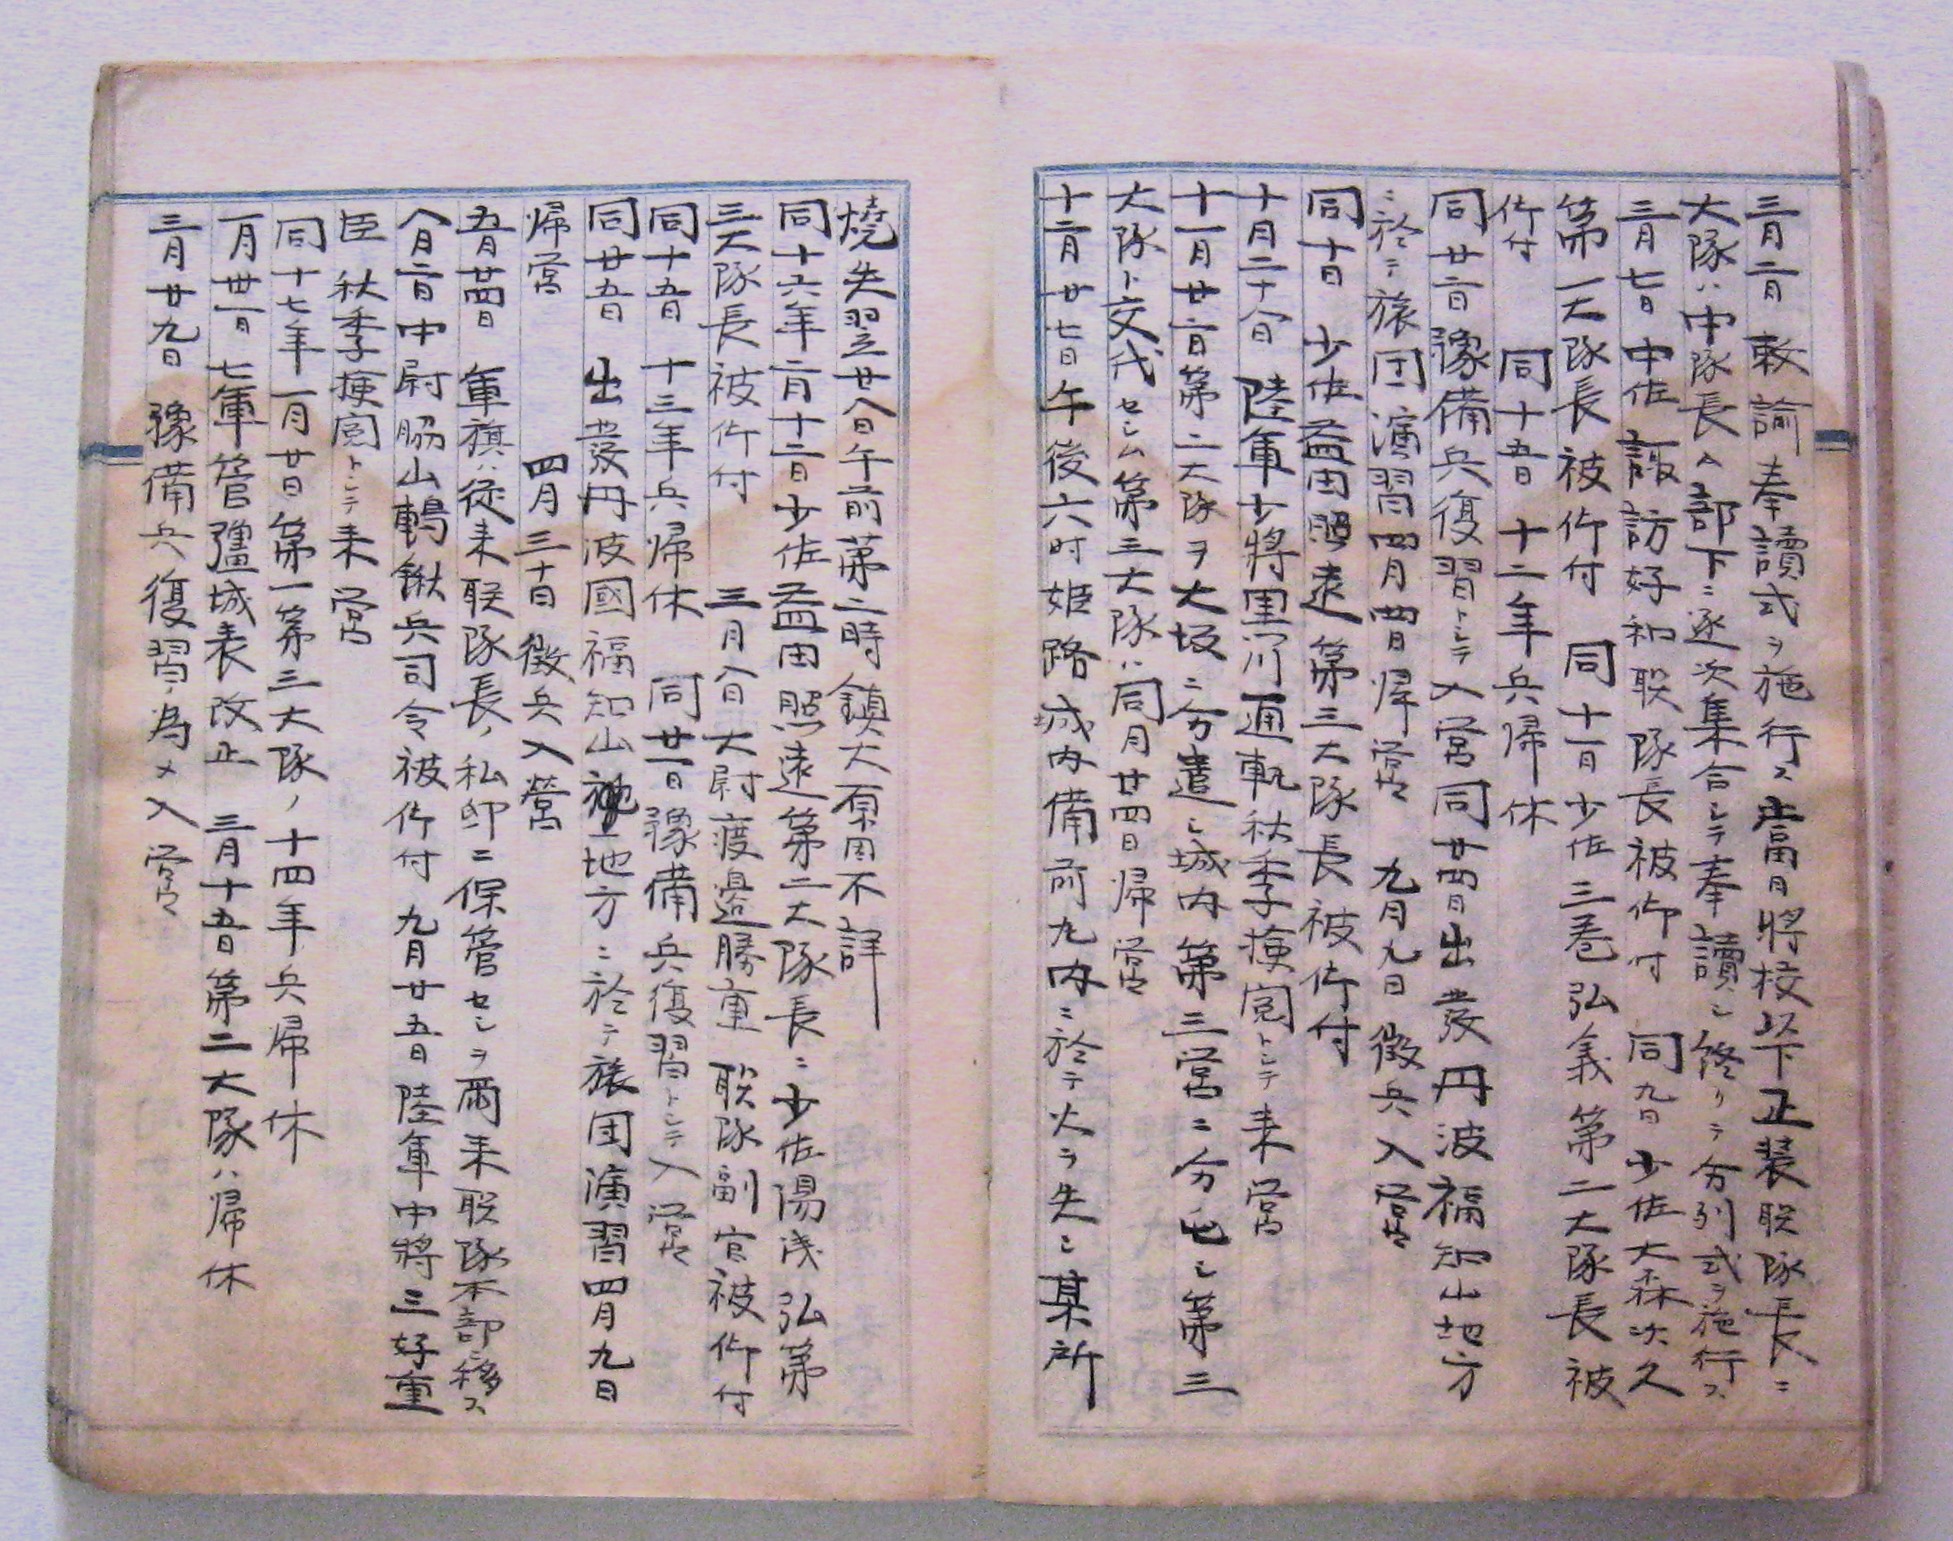 三月二日 敕諭奉讀式ヲ施行ス當日將校以下正装聯隊長ニ
大隊ハ中隊長ヘ部下ニ逐次集合シテ奉讀シ終リテ分列式ヲ施行ス
三月七日中佐諏訪好和聯隊長被仰付 同九日少佐大森次久
第一大隊長被仰付 同十一日少佐三巻弘義第二大隊長被
仰付 同十五日十二年兵帰休
同廿二日豫備兵復習トシテ入営同廿四日出発丹波福知山地方
ニ於テ旅団演習四月四日帰営 九月九日徴兵入営
同十日 少佐益田照遠第三大隊長被仰付
十月二十八日 陸軍少將黒川通軌秋季検閲トシテ来営
十一月廿二日第二大隊ヲ大坂ニ分遣シ城内第三営ニ分屯シ第三
大隊ト交代セシム第三大隊ハ同月廿四日帰営
十二月廿七日午後六时姫路城内備前丸内ニ於テ火ヲ失シ某所
燒失翌廿八日午前第二時鎮火原因不詳
同十六年二月十二日少佐益田照遠第二大隊長ニ少佐湯浅弘第
三大隊長被仰付 三月八日大尉渡邉勝重聯隊副官被仰付
同十五日 十三年兵帰休 同廿一日豫備兵復習トシテ入営
同廿五日 出発丹波國福知山地方ニ於テ旅団演習四月九日
帰営 四月三十日徴兵入営
五月廿四日 軍旗ハ従来聯隊長ノ私邸ニ保管セシヲ爾来聯隊本部ニ移ス
八月二日中尉脇山鶴鍬兵司令被仰付 九月廿五日陸軍中將三好重
臣 秋季検閲トシテ来営
同十七年一月廿日第一第三大隊ノ十四年兵帰休
一月卅一日七軍管彊城表改正 三月十五日第二大隊ハ帰休
三月廿九日 豫備兵復習ノ為メ入営